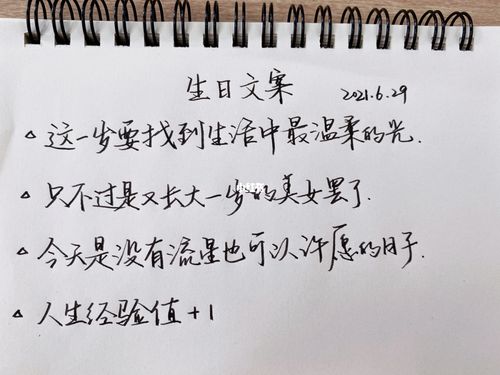 生日文案 2021.6.29
△ 这一岁要找到生活中最温柔的光.
△ 只不过是又长大一岁的美女罢了.
△ 今天是没有流星也可以许愿的日子.
△ 人生经验值+1